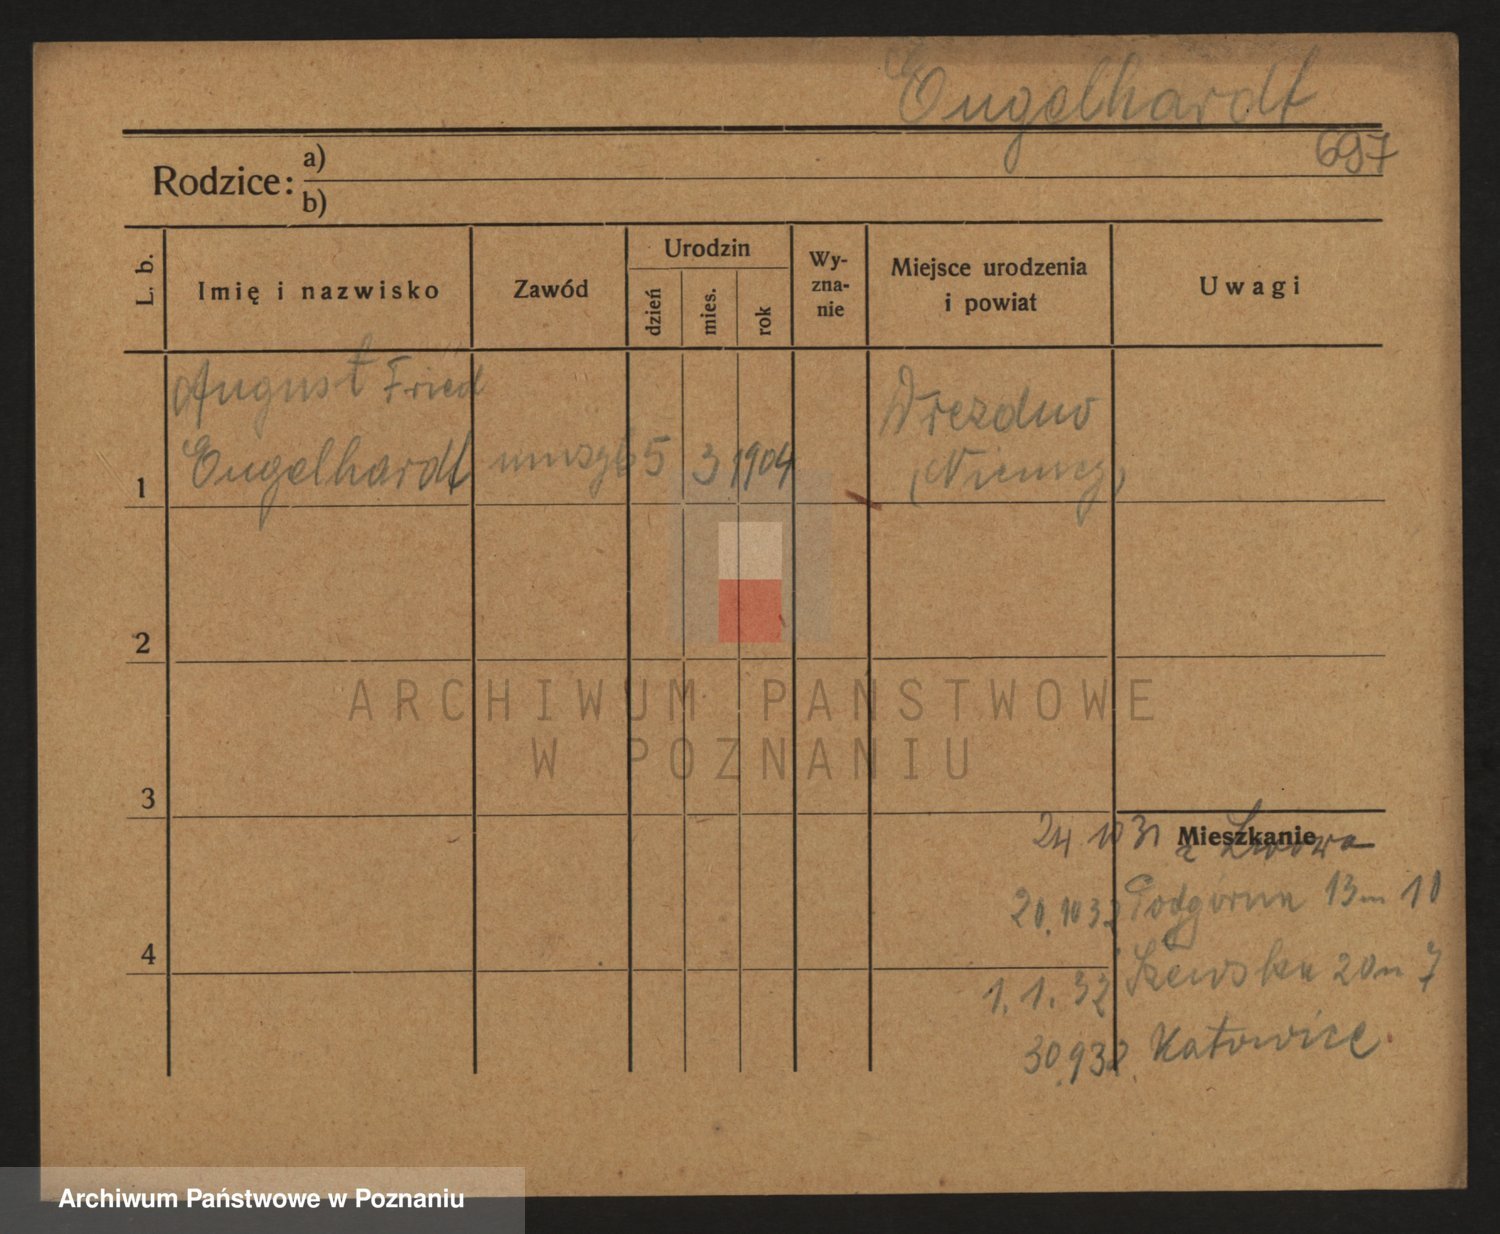 Engelhardt
697
Rodzice: a)
b)
L. b.
Imię i nazwisko
Zawód
Urodzin
dzień
mies.
rok
Wy-
zna-
nie
Miejsce urodzenia
i powiat
Uwagi
August Fried
Engelhardt
5 3 1904
Drezdno
(Niemcy)
1
2
ARCHIWUM PAŃSTWOWE
W POZNANIU
3
Mieszkanie
24 10 31 z Lwowa
20.10 32 Podgórna 13 m 10
4
1.1.32 Szewska 20 m 7
30.9 32. Katowice
Archiwum Państwowe w Poznaniu